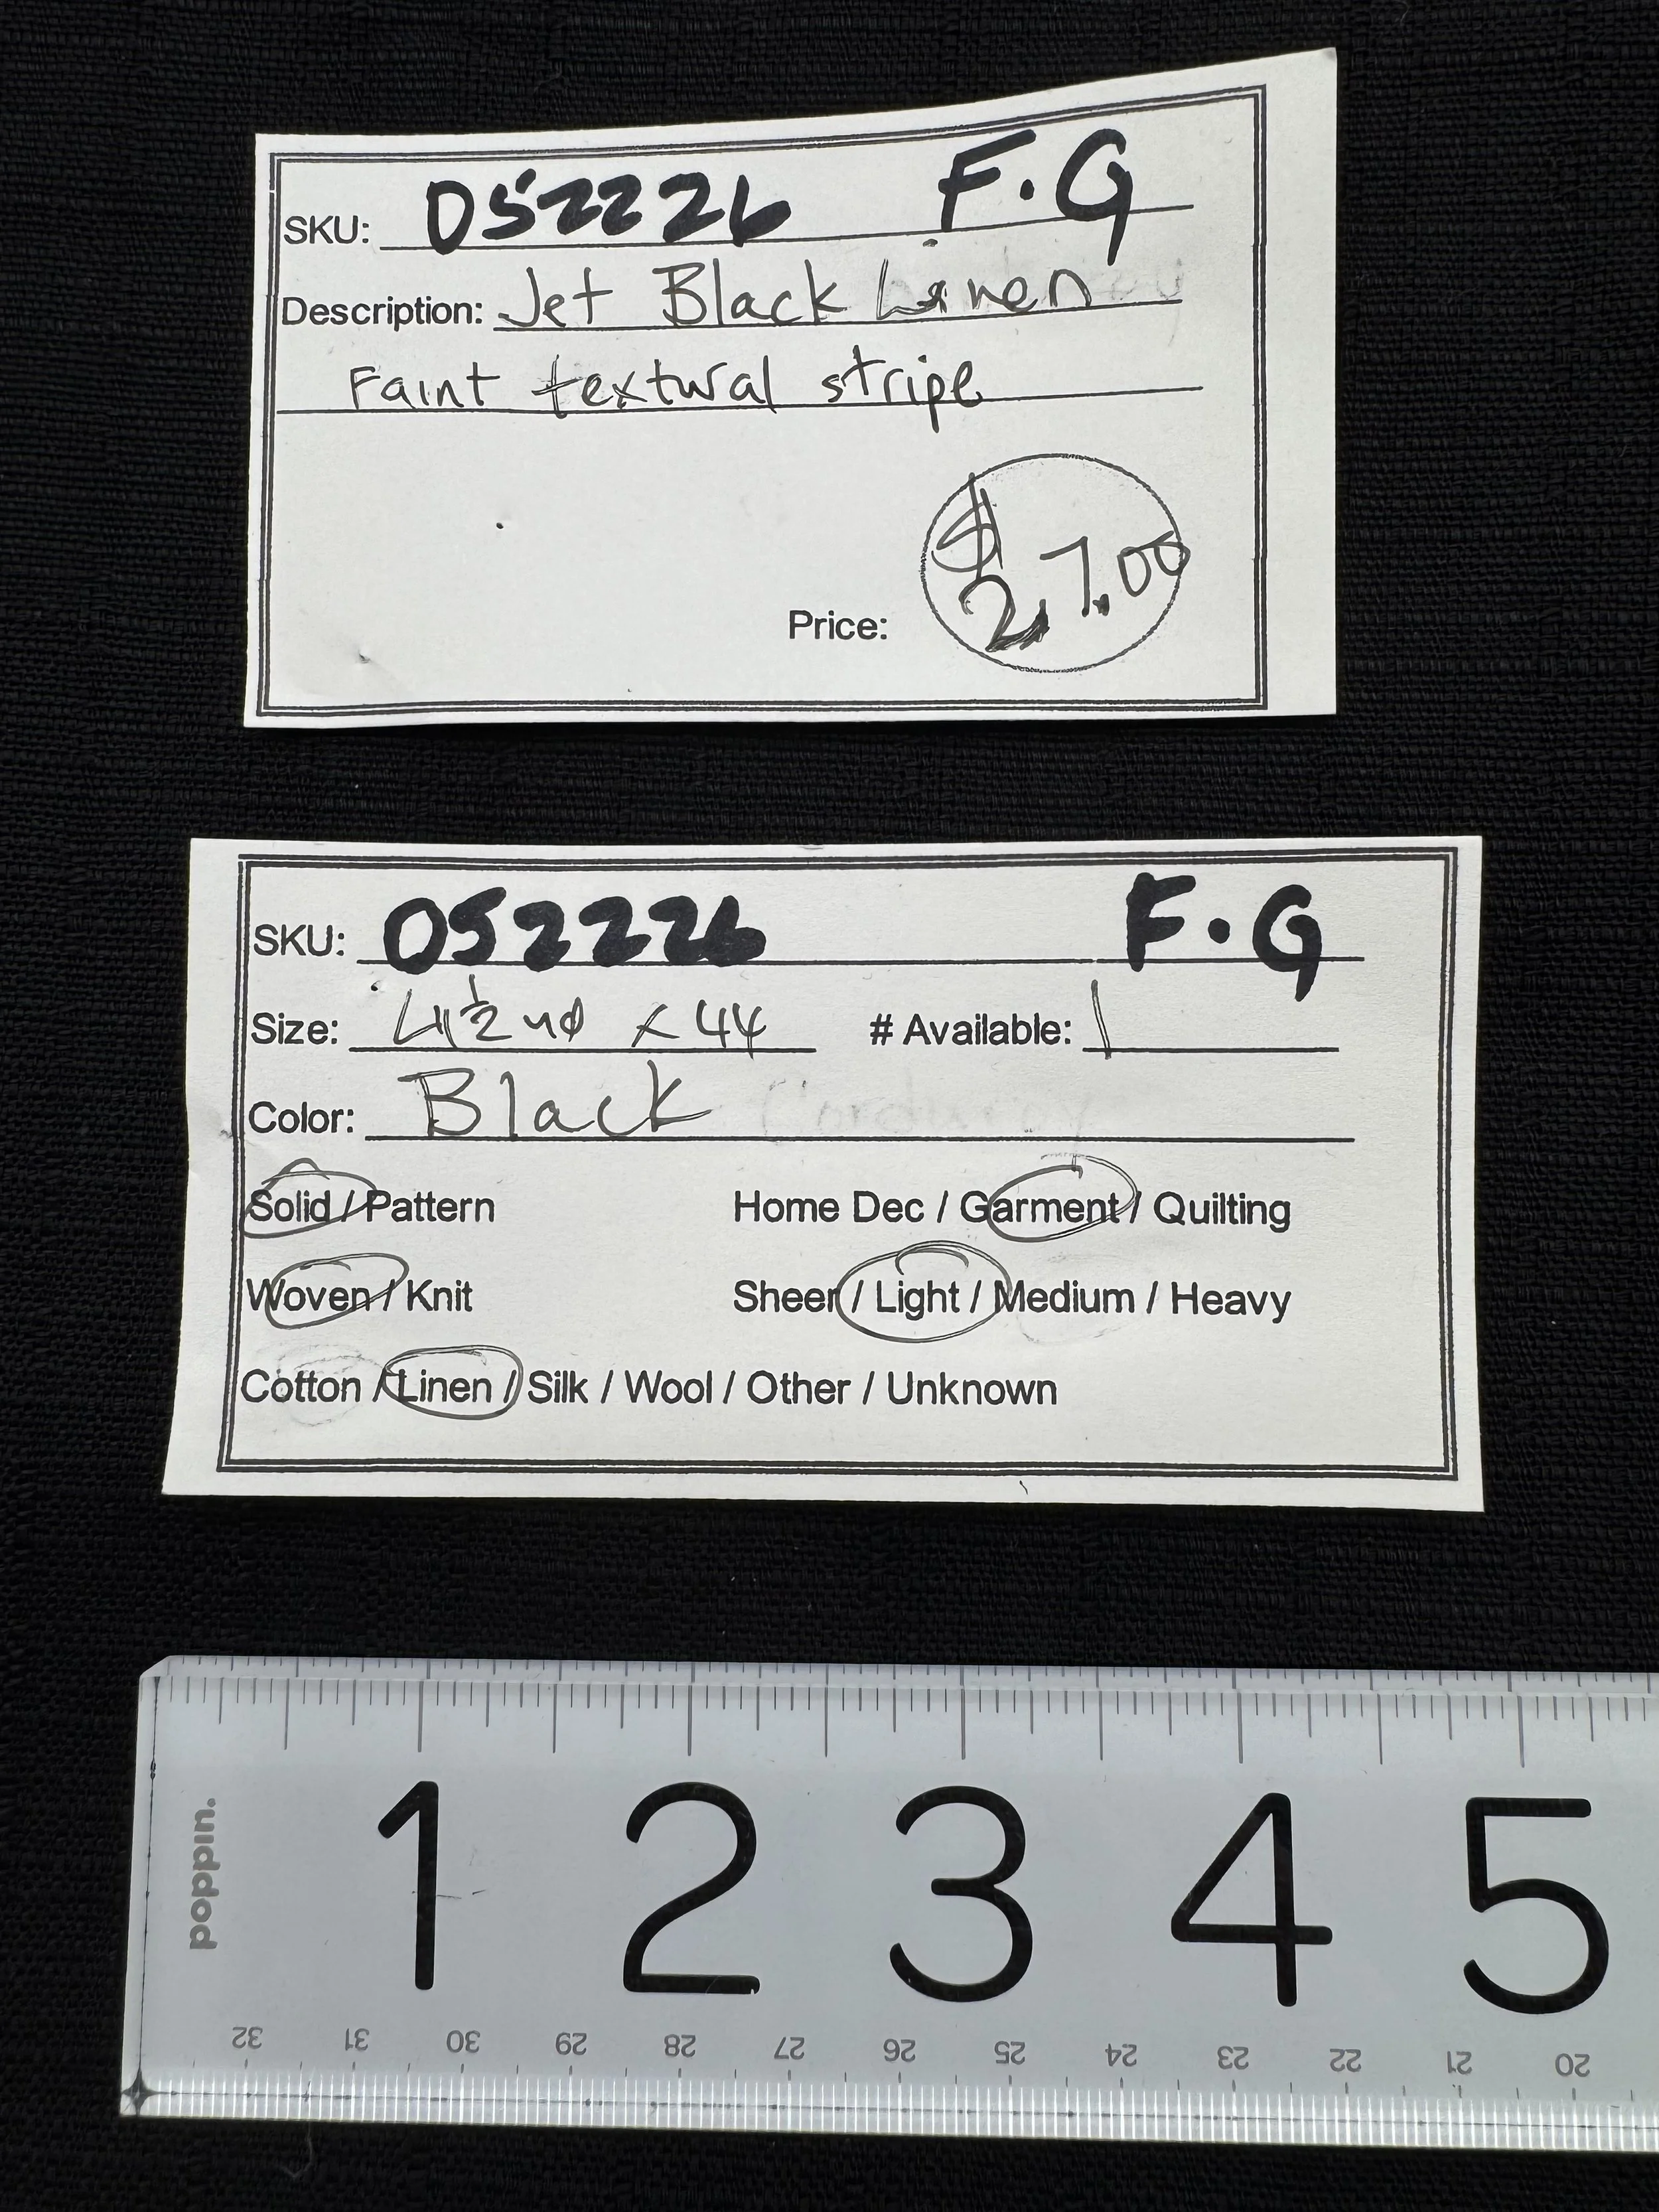 SKU: 052226 F.G
Description: Jet Black Linen
Faint textural stripe
Price: $27.00
SKU: 052226 F.G
Size: 4 1/2 yd x 44 # Available: 1
Color: Black
Solid / Pattern Home Dec / Garment / Quilting
Woven / Knit Sheer / Light / Medium / Heavy
Cotton / Linen / Silk / Wool / Other / Unknown
poppin.
1 2 3 4 5
32 31 30 29 28 27 26 25 24 23 22 21 20